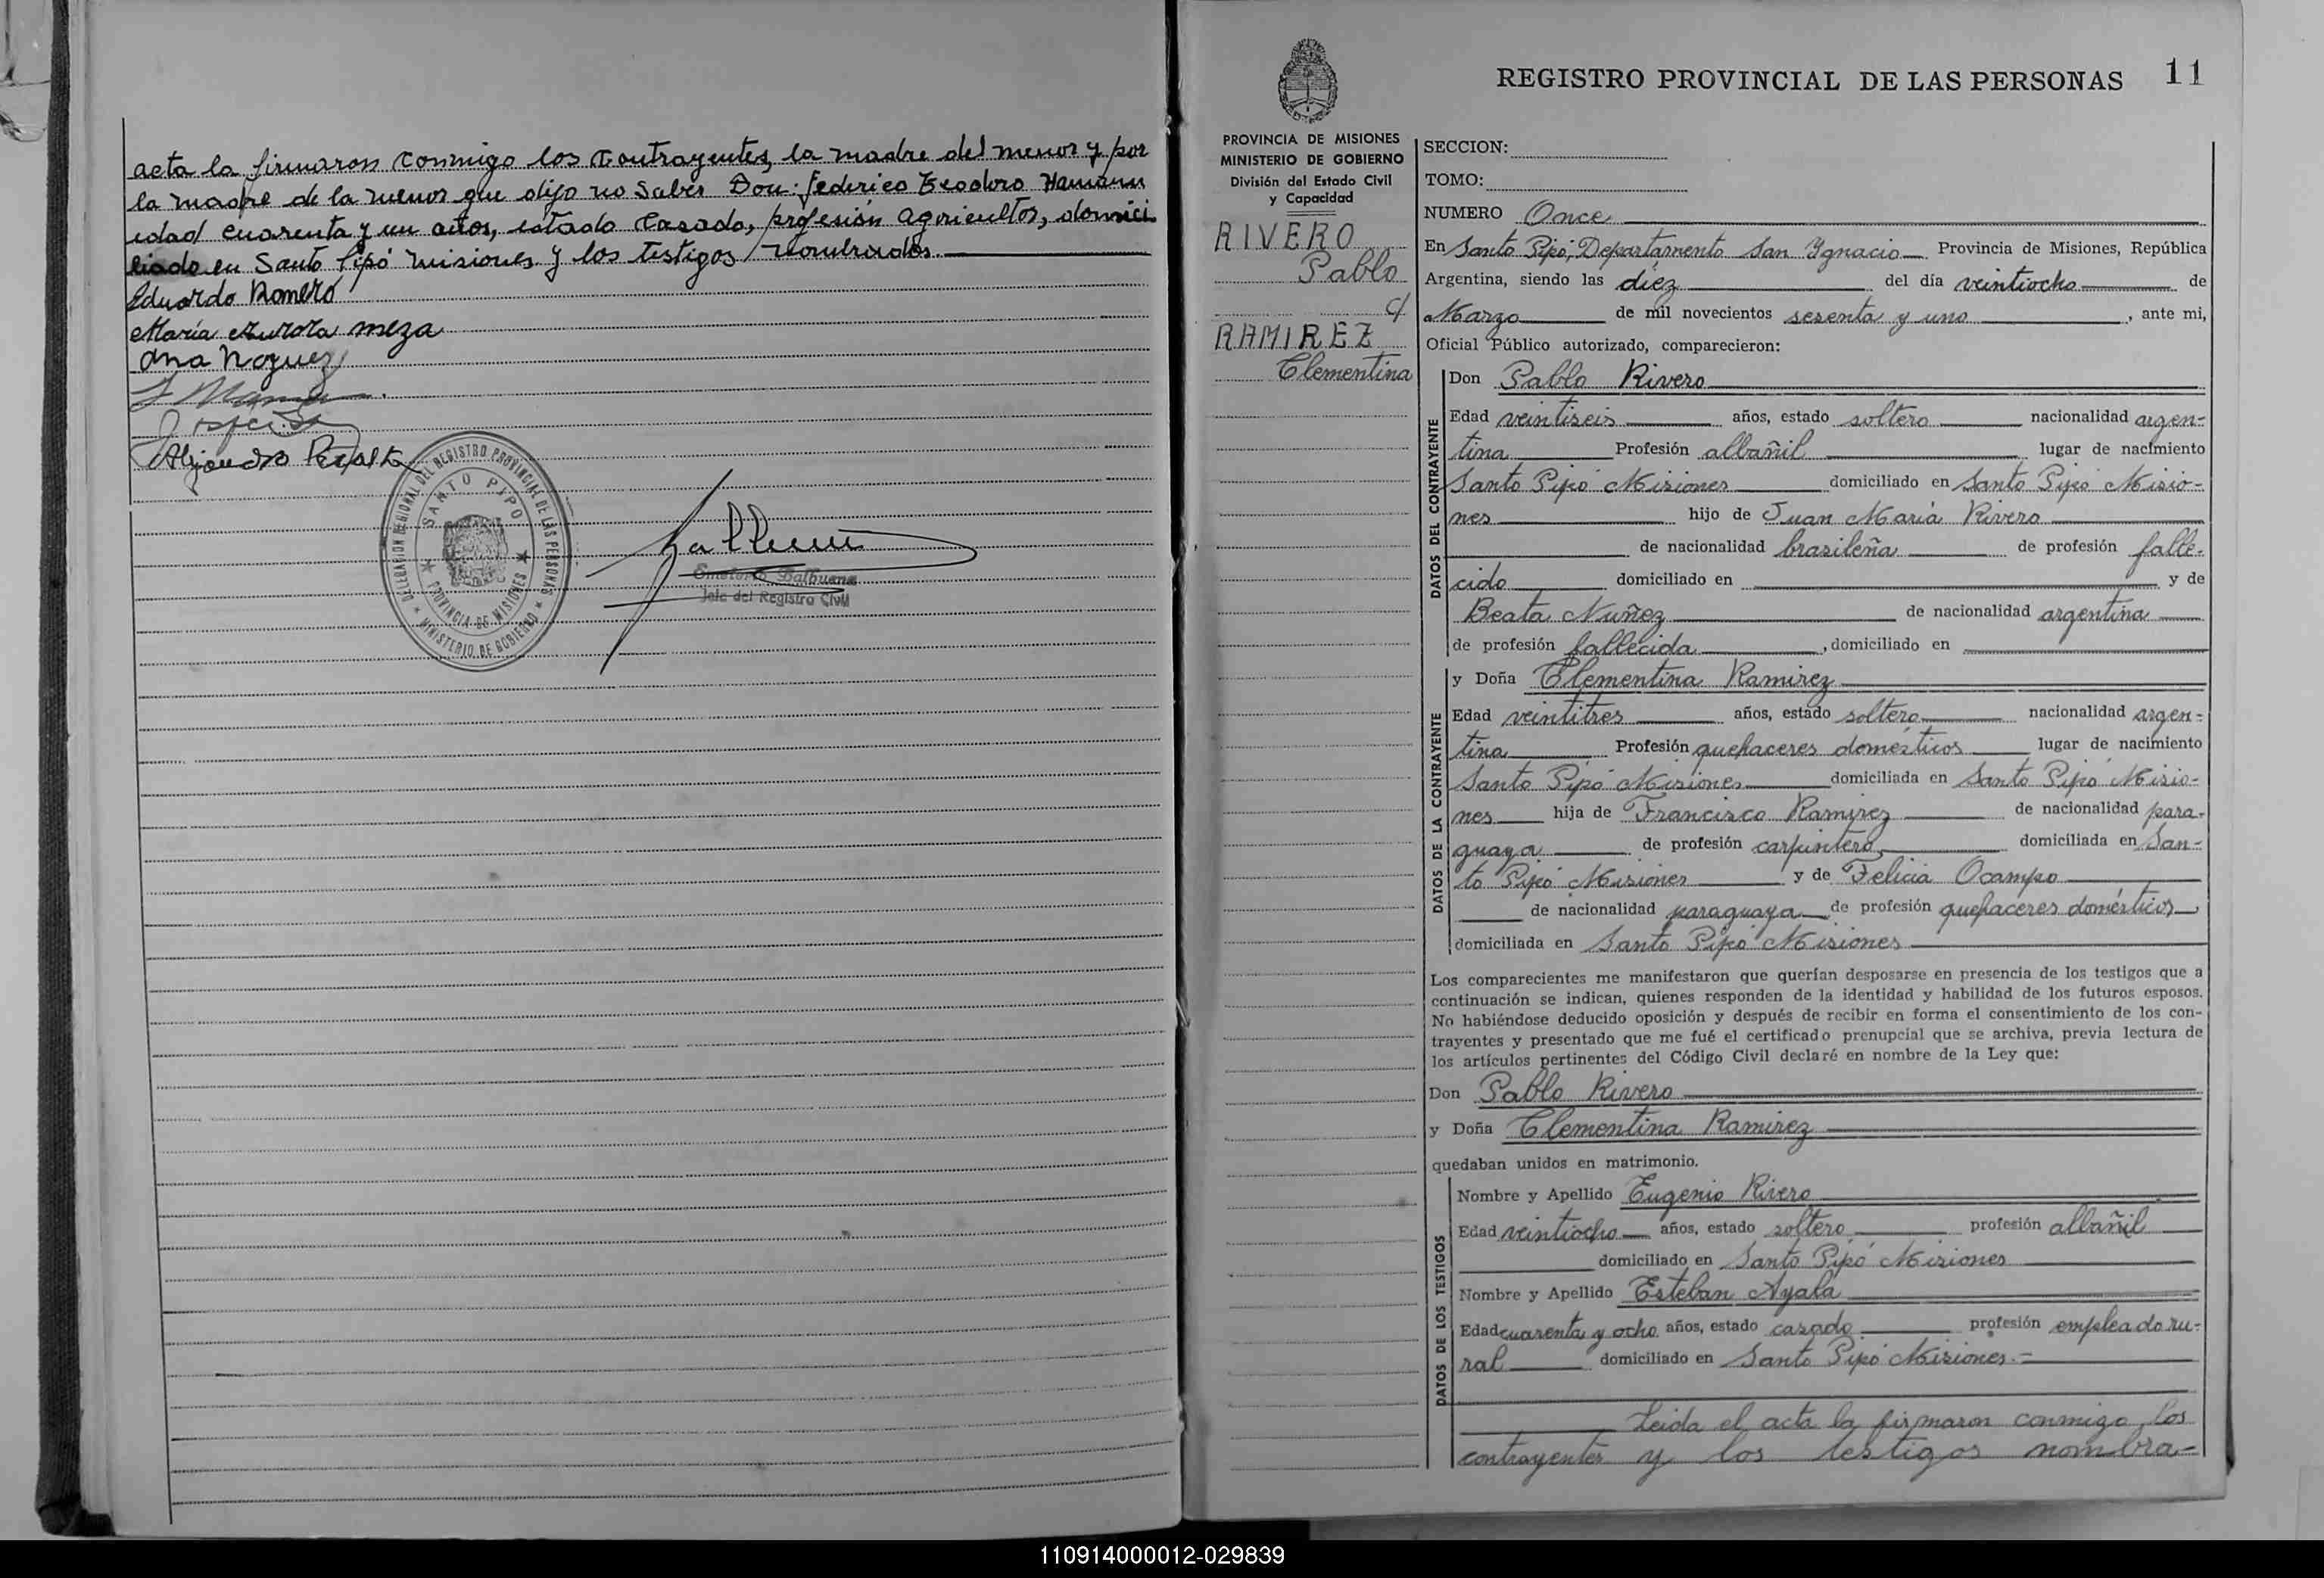 acta la firmaron conmigo los Contrayentes, la madre del menor y por
la madre de la menor que dijo no saber Don: Federico Teodoro Hamann
edad cuarenta y un años, estado Casado, profesión agricultor, domici
liado en Santo Pipó Misiones y los testigos nombrados.
Eduardo Romero
María Aurora meza
Ana Noguez
Alejandro Peralta
DELEGACION REGIONAL DEL REGISTRO PROVINCIAL DE LAS PERSONAS
SANTO PIPO
PROVINCIA DE MISIONES
MINISTERIO DE GOBIERNO
Balbuena
Jefe del Registro Civil
REGISTRO PROVINCIAL DE LAS PERSONAS 11
PROVINCIA DE MISIONES
MINISTERIO DE GOBIERNO
División del Estado Civil
y Capacidad
RIVERO
Pablo
c/
RAMIREZ
Clementina
SECCION:
TOMO:
NUMERO Once
En Santo Pipó, Departamento San Ygnacio Provincia de Misiones, República
Argentina, siendo las diéz del día veintiocho de
Marzo de mil novecientos sesenta y uno, ante mi,
Oficial Público autorizado, comparecieron:
DATOS DEL CONTRAYENTE
Don Pablo Rivero
Edad veintiseis años, estado soltero nacionalidad argen-
tina Profesión albañil lugar de nacimiento
Santo Pipó Misiones domiciliado en Santo Pipó Misio-
nes hijo de Juan María Rivero
de nacionalidad brasileña de profesión falle-
cido domiciliado en y de
Beata Nuñez de nacionalidad argentina
de profesión fallecida, domiciliado en
DATOS DE LA CONTRAYENTE
y Doña Clementina Ramirez
Edad veintitres años, estado soltero nacionalidad argen-
tina Profesión quehaceres domésticos lugar de nacimiento
Santo Pipó Misiones domiciliada en Santo Pipó Misio-
nes hija de Francisco Ramirez de nacionalidad para-
guaya de profesión carpintero domiciliada en San-
to Pipó Misiones y de Felicia Ocampo
de nacionalidad paraguaya de profesión quehaceres domésticos
domiciliada en Santo Pipó Misiones
Los comparecientes me manifestaron que querían desposarse en presencia de los testigos que a
continuación se indican, quienes responden de la identidad y habilidad de los futuros esposos.
No habiéndose deducido oposición y después de recibir en forma el consentimiento de los con-
trayentes y presentado que me fué el certificado prenupcial que se archiva, previa lectura de
los artículos pertinentes del Código Civil declaré en nombre de la Ley que:
Don Pablo Rivero
y Doña Clementina Ramirez
quedaban unidos en matrimonio.
DATOS DE LOS TESTIGOS
Nombre y Apellido Eugenio Rivero
Edad veintiocho años, estado soltero profesión albañil
domiciliado en Santo Pipó Misiones
Nombre y Apellido Esteban Ayala
Edad cuarenta y ocho años, estado casado profesión empleado ru-
ral domiciliado en Santo Pipó Misiones.-
Leida el acta la firmaron conmigo, los
contrayentes y los testigos nombra-
110914000012-029839